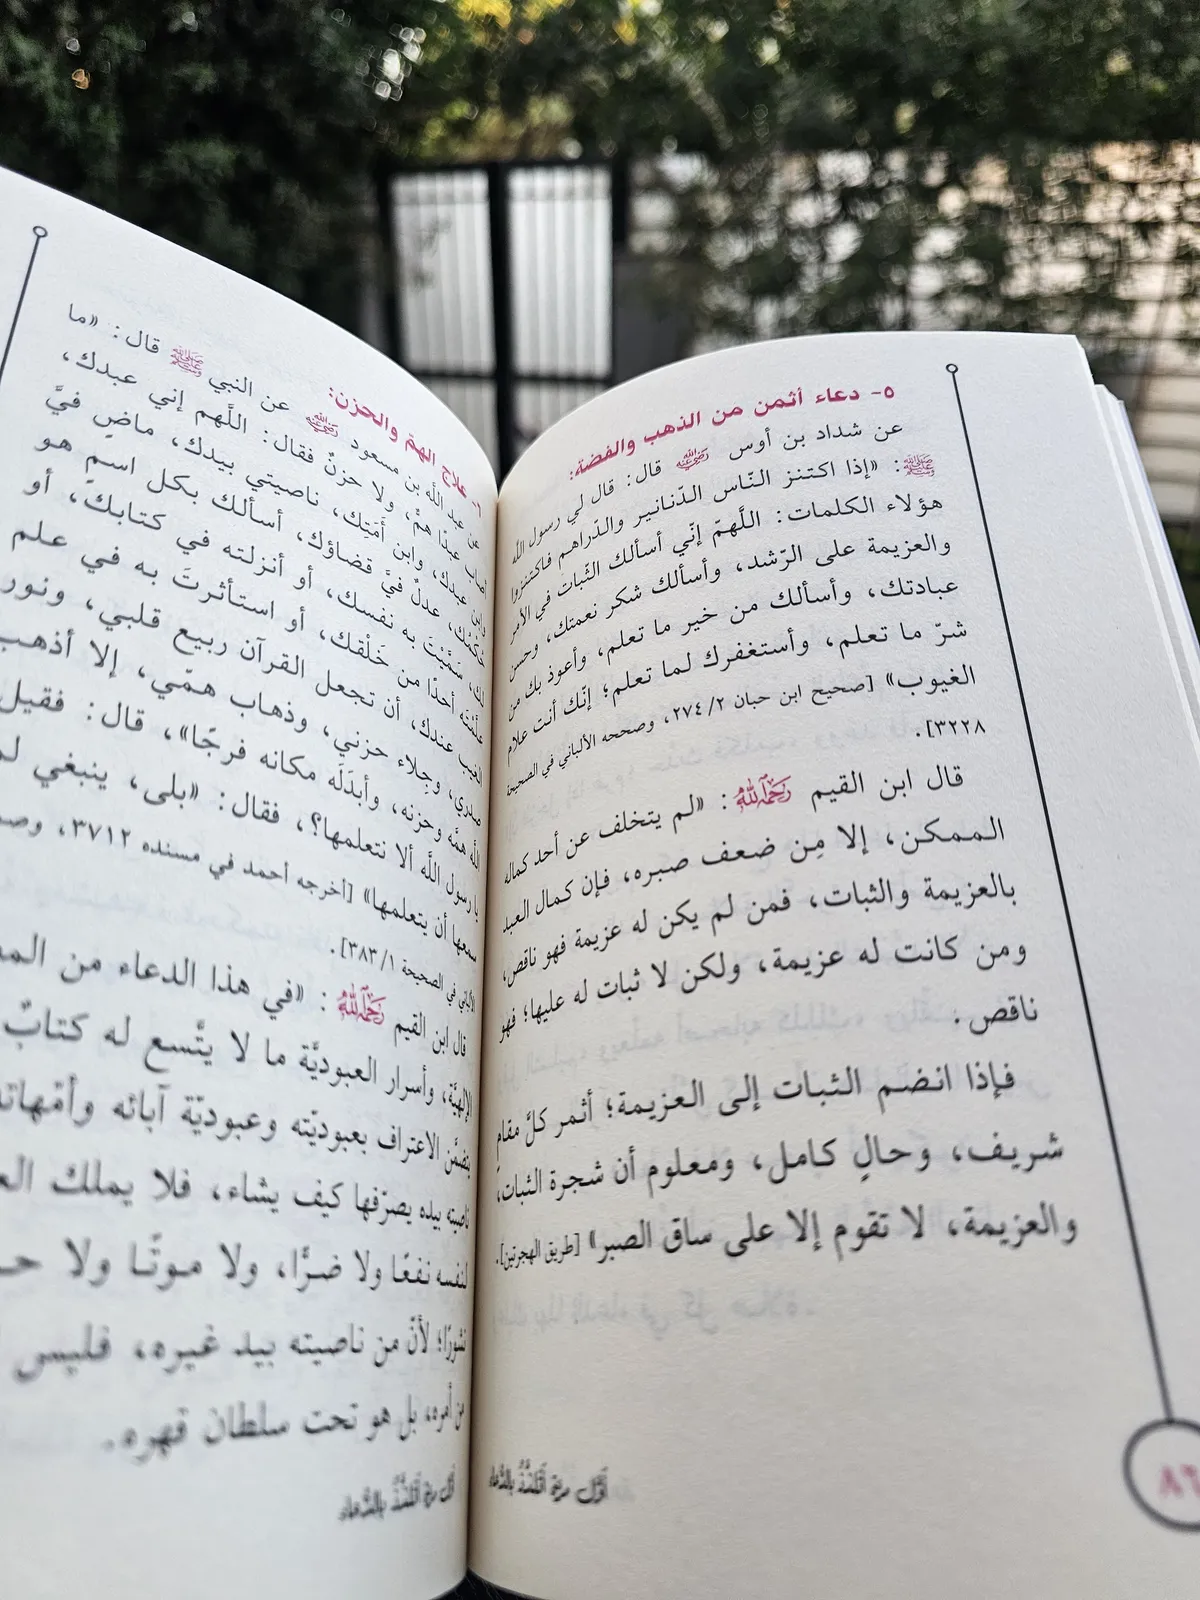 ٥- دعاء أثمن من الذهب والفضة:
عن شداد بن أوس رضي الله عنه قال: قال لي رسول الله
ﷺ: «إذا اكتنز النّاس الدّنانير والدّراهم فاكتنزوا
هؤلاء الكلمات: اللَّهمّ إنّي أسألك الثّبات في الأمر
والعزيمة على الرّشد، وأسألك شكر نعمتك، وحسن
عبادتك، وأسألك من خير ما تعلم، وأعوذ بك من
شرّ ما تعلم، وأستغفرك لما تعلم؛ إنّك أنت علام
الغيوب» [صحيح ابن حبان ٢٧٤/٢، وصححه الألباني في الصحيحة
٣٢٢٨].
قال ابن القيم رحمه الله: «لم يتخلف عن أحد كماله
الممكن، إلا مِن ضعف صبره، فإن كمال العبد
بالعزيمة والثبات، فمن لم يكن له عزيمة فهو ناقص،
ومن كانت له عزيمة، ولكن لا ثبات له عليها؛ فهو
ناقص.
فإذا انضم الثبات إلى العزيمة؛ أثمر كلَّ مقام
شريف، وحالٍ كامل، ومعلوم أن شجرة الثبات،
والعزيمة، لا تقوم إلا على ساق الصبر» [طريق الهجرتين].
أوَّل مرة أتلذَّذُ بالدُّعاء
علاج الهمّ والحزن:
عن عبد الله بن مسعود رضي الله عنه عن النبي ﷺ قال: «ما
أصاب عبدًا همٌّ، ولا حزنٌ فقال: اللَّهم إني عبدك،
وابن عبدك، وابن أَمَتِك، ناصيتي بيدك، ماضٍ فيَّ
حُكمُك، عدلٌ فيَّ قضاؤك، أسألك بكل اسمٍ هو
لك، سَمَّيْتَ به نفسك، أو أنزلته في كتابك، أو
علَّمْتَه أحدًا من خَلْقك، أو استأثرتَ به في علم
الغيب عندك، أن تجعل القرآن ربيع قلبي، ونور
صدري، وجِلاء حزني، وذهاب همّي، إلا أذهب
الله همَّه وحزنه، وأبدَلَه مكانه فرجًا»، قال: فقيل
يا رسول الله ألا نتعلمها؟، فقال: «بلى، ينبغي
سمعها أن يتعلمها» [أخرجه أحمد في مسنده ٣٧١٢،
الألباني في الصحيحة ٣٨٣/١].
قال ابن القيم رحمه الله: «في هذا الدعاء من
الإلهيَّة، وأسرار العبوديَّة ما لا يتَّسع له كتابٌ
يتضمَّن الاعتراف بعبوديّته وعبوديّة آبائه وأمّهاته
ناصيته بيده يصرّفها كيف يشاء، فلا يملك
لنفسه نفعًا ولا ضرًّا، ولا موتًا ولا
نشورًا؛ لأنّ من ناصيته بيد غيره، فليس
من أمره، بل هو تحت سلطان قهره.
أوَّل مرة أتلذَّذُ بالدُّعاء